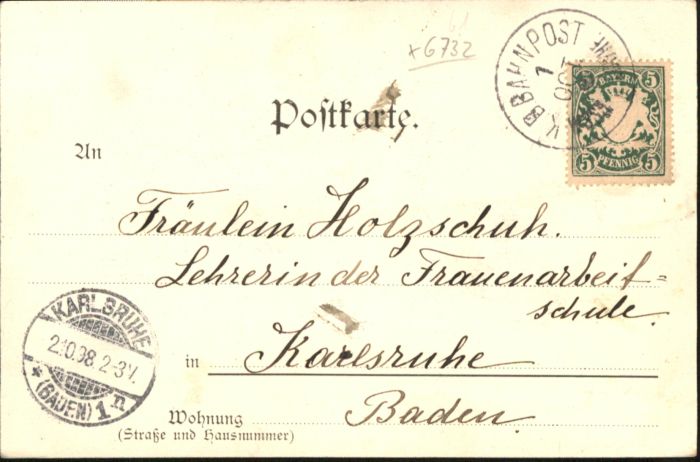 61
x 6732
K.B.BAHNPOST
1
OCT
BAYERN
5 5
5 PFENNIG 5
Postkarte.
An
Fräulein Holzschuh.
Lehrerin der Frauenarbeit=
schule.
in Karlsruhe
Baden.
Wohnung
(Straße und Hausnummer)
KARLSRUHE
2.10.98.2-3V.
* (BADEN) 1 n